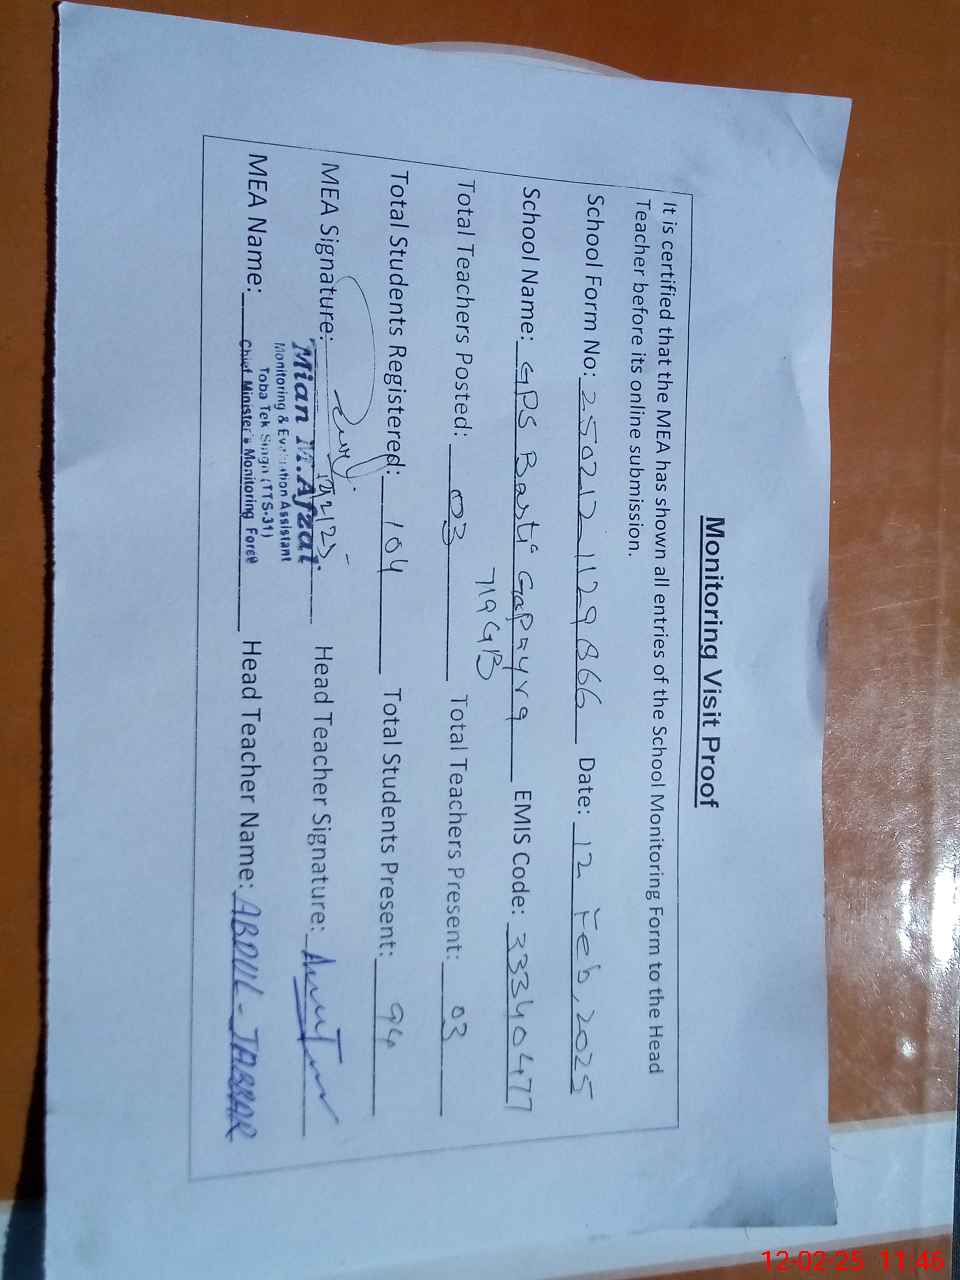 Monitoring Visit Proof
It is certified that the MEA has shown all entries of the School Monitoring Form to the Head
Teacher before its online submission.
School Form No: 250212 1129866 Date: 12 Feb, 2025
School Name: GPS Basti Gapayra EMIS Code: 33340477
719GB
Total Teachers Posted: 03 Total Teachers Present: 03
Total Students Registered: 104 Total Students Present: 94
MEA Signature: 12/2/25 Head Teacher Signature:
Mian M.Afzal
Monitoring & Evaluation Assistant
Toba Tek Singh (TTS-31)
Chief Minister's Monitoring Force
MEA Name: Head Teacher Name: ABDUL-JABBAR
12-02-25 11:46